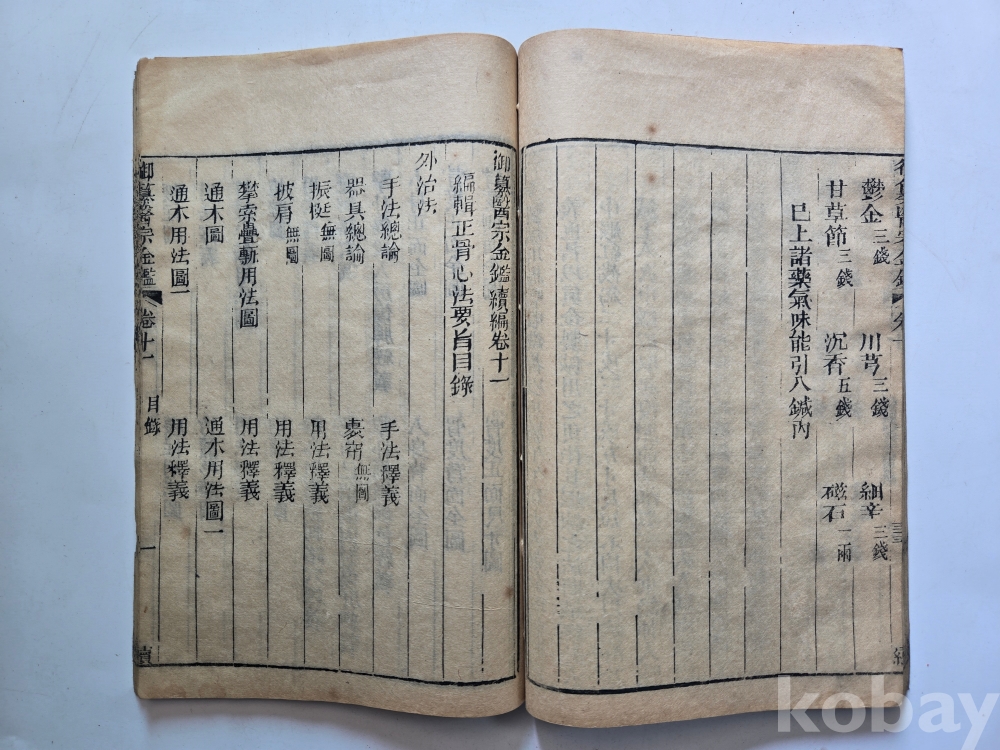 鬱金三錢 川芎三錢 細辛三錢
甘草節三錢 沉香五錢 磁石二兩
已上諸藥氣味能引入鍼內
御纂醫宗金鑑續編卷十一
編輯正骨心法要旨目錄
外治法
手法總論 手法釋義
器具總論 裹帘無圖
振梃無圖 用法釋義
披肩無圖 用法釋義
攀索疊甎用法圖 用法釋義
通木圖 通木用法圖一
通木用法圖一 用法釋義
御纂醫宗金鑑 卷十一 目錄 一 續
kobay